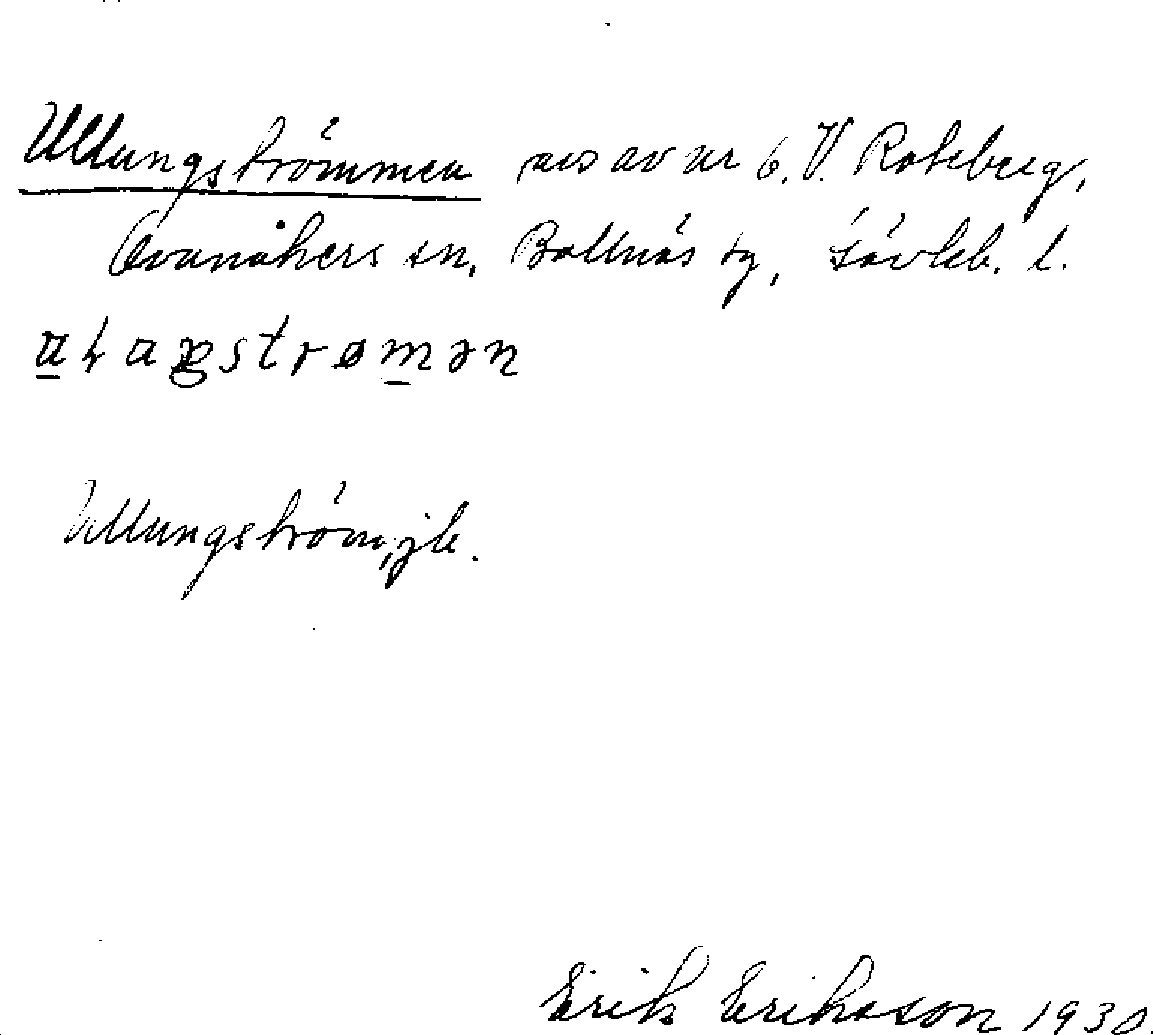 Ullungströmmen  avs av nr 6. V. Roteberg,
Ovanåkers sn, Bollnäs tg, Gävleb. l.
strømən
Ullungström, jk.
Erik Eriksson 1930.